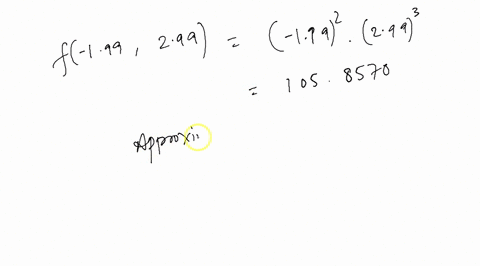 f(-1.99, 2.99) = (-1.99)². (2.99)³
= 105.8570
Approxi